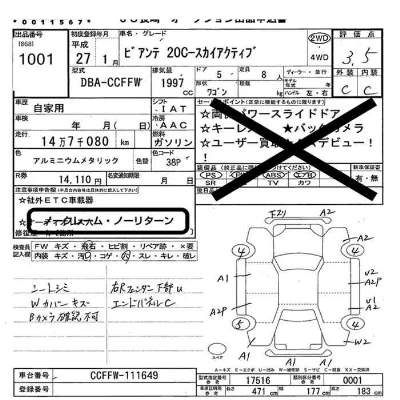 *0011567*
出品番号
(868)
1001
初度登録年月
平成
27年1月
車名・グレード
ビアンテ 20C-スカイアクティブ
2WD
4WD
評価点
3.5
外装 内装
C C
型式
DBA-CCFFW
排気量
1997
CC
ドア 5
定員 8
ディーラー・並行
左・右
ワゴン
車歴
自家用
シフト
IAT
車検
年 月( 日)
冷房
AAC
走行
14万7千080 km
燃料
ガソリン
色
アルミニウムメタリック
色替
色コード
38P
R券
14,110 円
月 日
☆両側パワースライドドア
☆キーレス ★バックカメラ
☆ユーザー買取 デビュー!
!
PS PW ABS エアB
SR TV カワ
有・無
☆社外ETC車載器
ノークレーム・ノーリターン
検査員記入欄
FW キズ・飛石・ヒビ割・リペア跡・×要
内装 キズ・汚レ・コゲ・穴・スレ・キレ・破レ
シートシミ
Wカバーキズ
Bカメラ確認不可
右Rフェンダー下部U
エンドパネルC
F21
A2
4
4
5
4
A1
A2P
A1
U2
A2P
U1
A2
W2
A1
A1
A2
スペア
車台番号
CCFFW-111649
登録番号
型式指定番号
17516
類別区分番号
0001
長さ 471 cm 幅 177 cm 高さ 183 cm